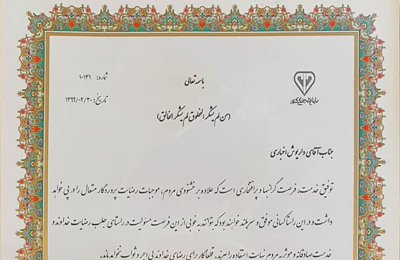 باسمه تعالی
شماره: ۱۰۱۴۱
تاریخ: ۱۳۹۹/۰۲/۳۰
(من لم یشکر المخلوق لم یشکر الخالق)
جناب آقای داریوش اخباری
توفیق خدمت، فرصت گرانبها و پرافتخاری است که علاوه بر خشنودی مردم، موجبات رضایت پروردگار متعال را در پی خواهد
داشت و در این راستا کسانی موفق و سربلند خواهند بود که بتوانند به خوبی از این فرصت مسئولیت در راستای جلب رضایت خداوند و
خدمت صادقانه و موثر به مردم نهایت استفاده را ببرند. قطعا کار برای رضای خداوند بی اجر و ثواب نخواهد ماند.